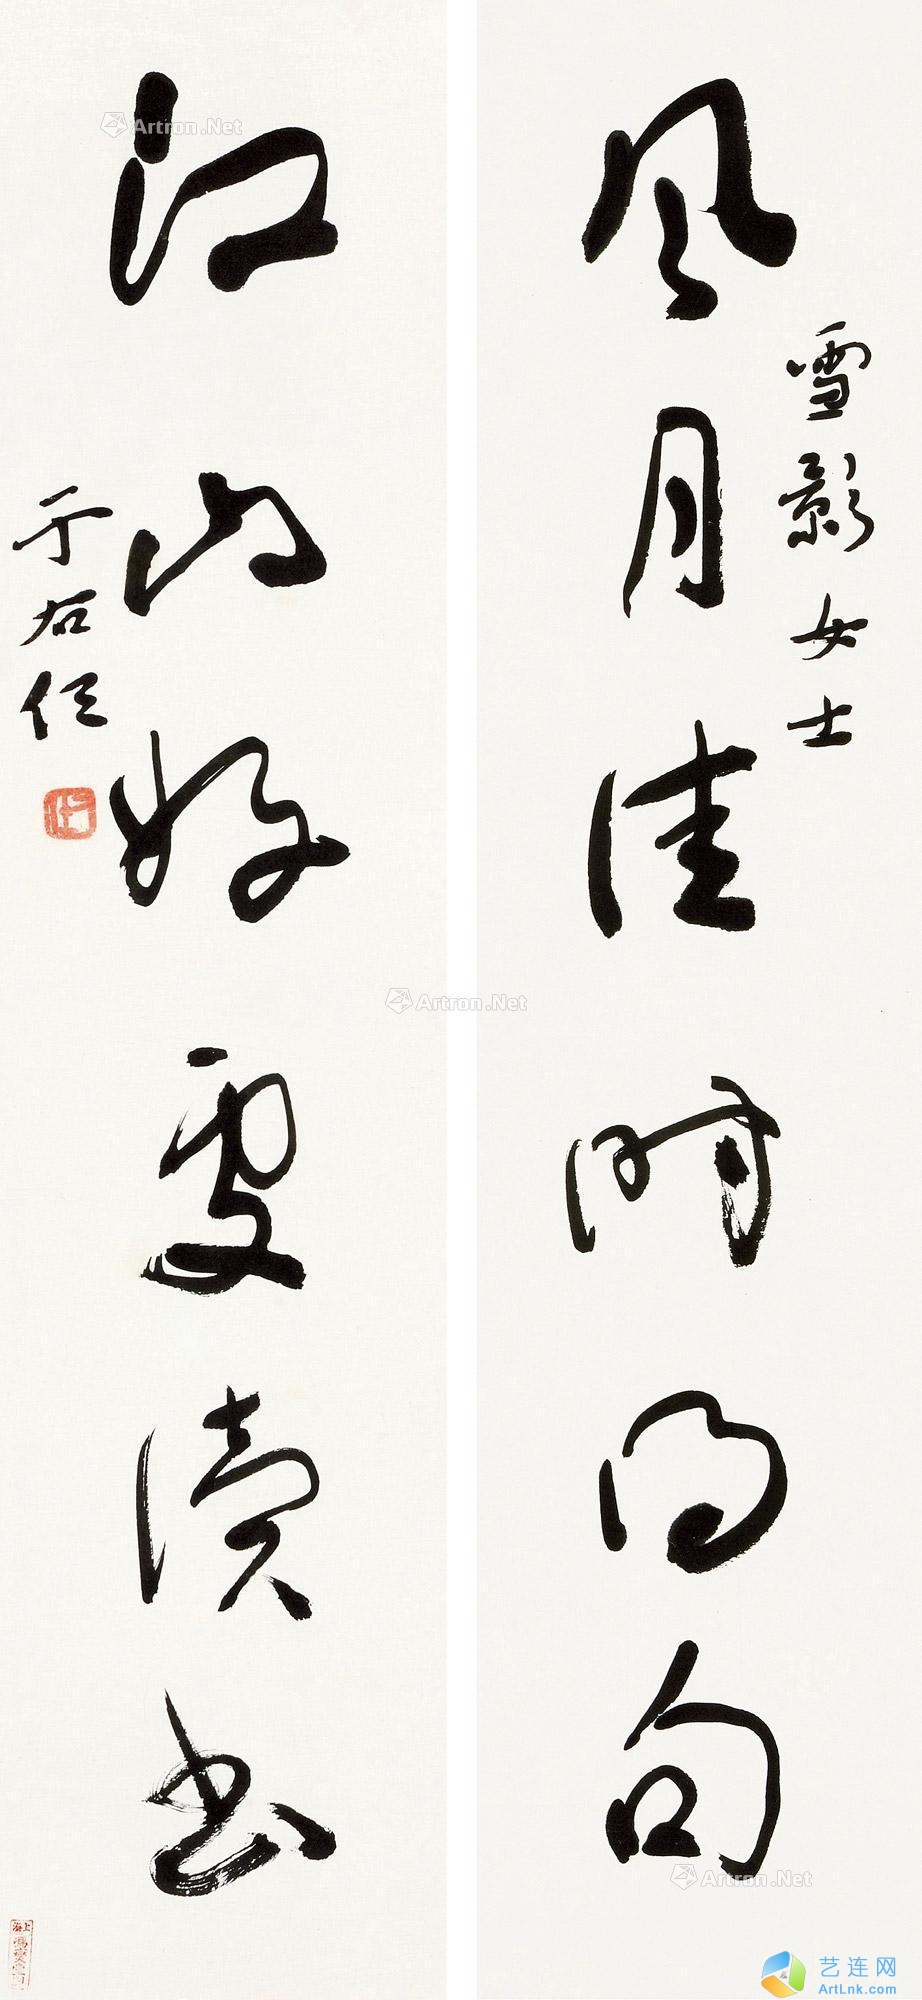 雪影女士
风月佳时得句
江山好处读书
于右任
Artron.Net
Artron.Net
Artron.Net
艺连网
ArtLnk.com